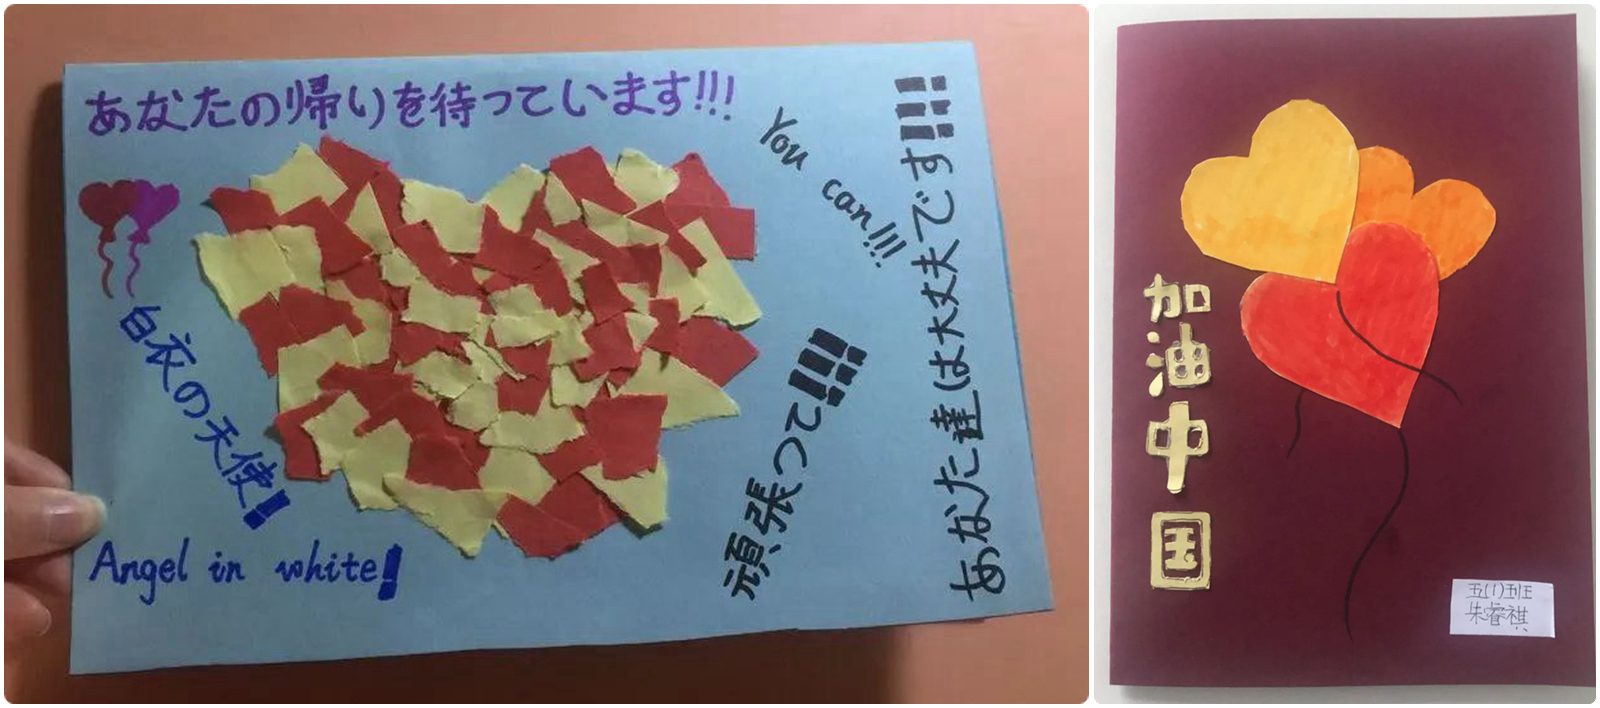 あなたの帰りを待っています!!!
You can!!!
あなた達は大丈夫です!!!
頑張って!!!
白衣の天使!
Angel in white!
加油中国
五(1)班
朱睿祺